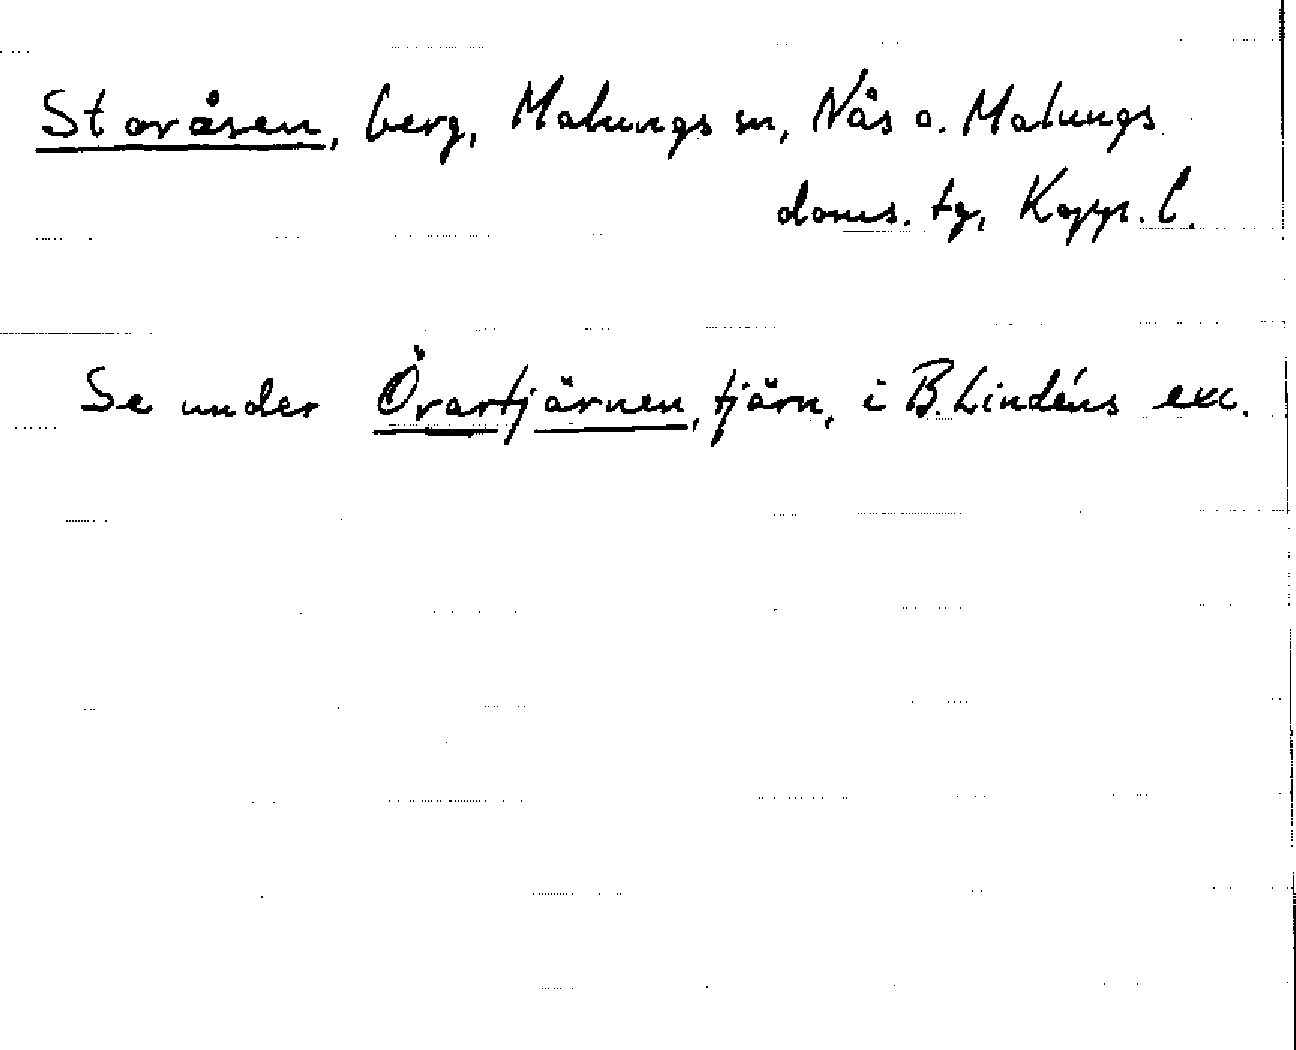 Storåsen, berg, Malungs sn, Nås o. Malungs
doms. tg, Kopp. l.
Se under Örartjärnen, tjärn, i B. Lindéns exc.